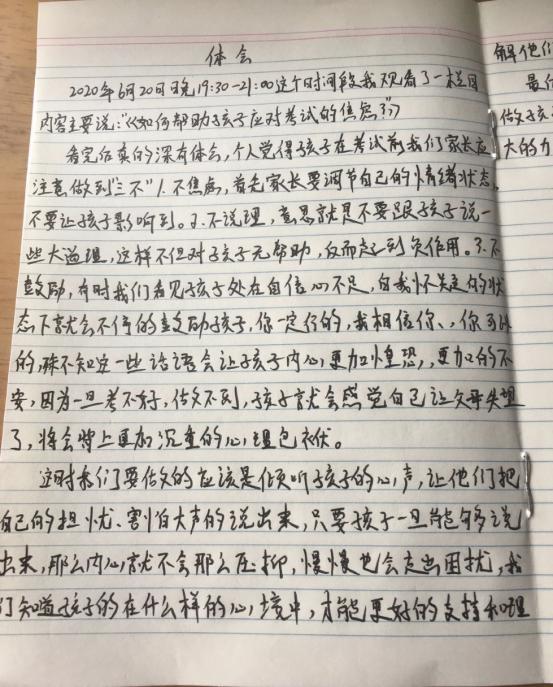 体会
2020年6月20日晚19:30-21:00这个时间段我观看了一栏目
内容主要说:"《如何帮助孩子应对考试的焦虑?》
看完后真的深有体会,个人觉得孩子在考试前我们家长应
注意做到"三不"1.不焦虑,首先家长要调节自己的情绪状态,
不要让孩子影响到。2.不说理,意思就是不要跟孩子说一
些大道理,这样不但对孩子无帮助,反而起到负作用。3.不
鼓励,有时我们看见孩子处在自信心不足,自我怀疑的状
态下就会不停的鼓励孩子,你一定行的,我相信你、,你可以
的,殊不知这一些话语会让孩子内心更加惶恐,,更加的不
安,因为一旦考不好,做不到,孩子就会感觉自己让父母失望
了,将会背上更加沉重的心理包袱。
这时我们要做的应该是倾听孩子的心声,让他们把
自己的担忧、害怕大声的说出来,只要孩子一旦能够多说
出来,那么内心就不会那么压抑,慢慢也会走出困扰,我
们知道孩子的在什么样的心境中,才能更好的支持和理
解他们
最后
做孩子
大的力